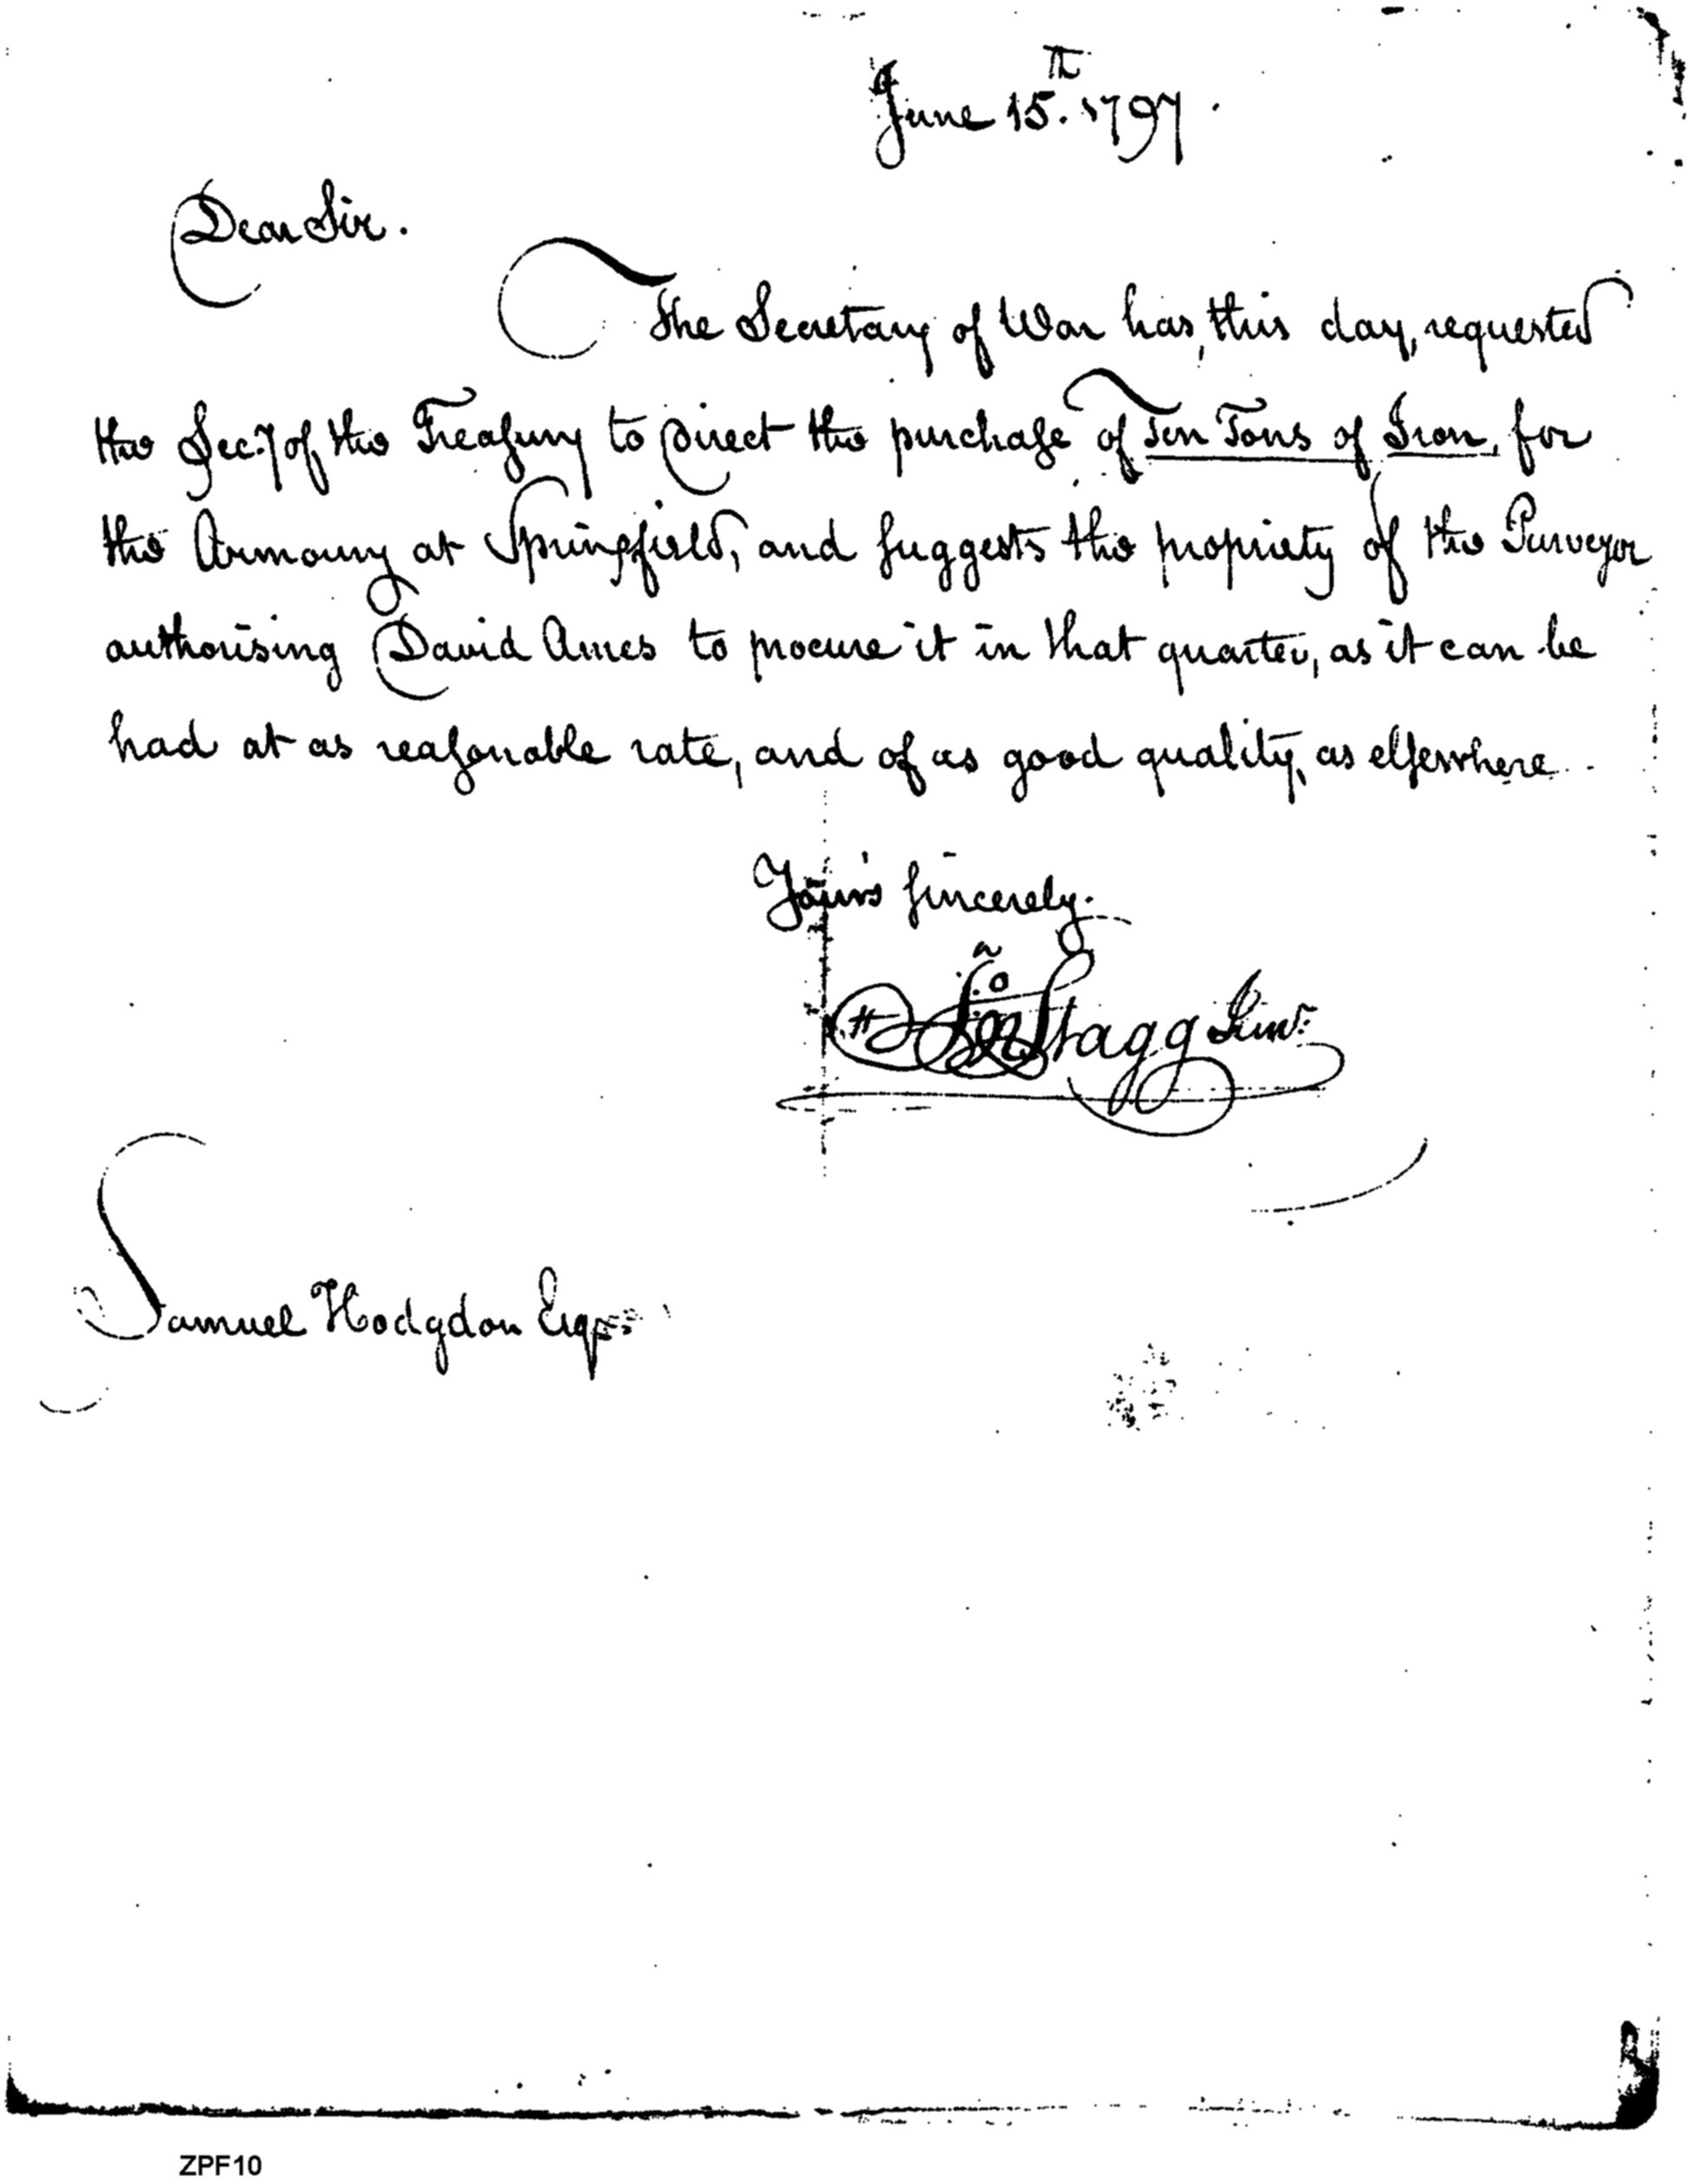 June 15.th 1797.
Dear Sir.
The Secretary of War has, this day, requested
the Sec.y of, the Treasury to Direct the purchase of Ten Tons of Iron, for
the Armoury at Springfield, and suggests the propriety of the Purveyor
authorising David Ames to procure it in that quarter, as it can be
had at as reasonable rate, and of as good quality, as elsewhere.
Your's sincerely.
Jno Stagg Junr.
Samuel Hodgdon Esqr.
ZPF10